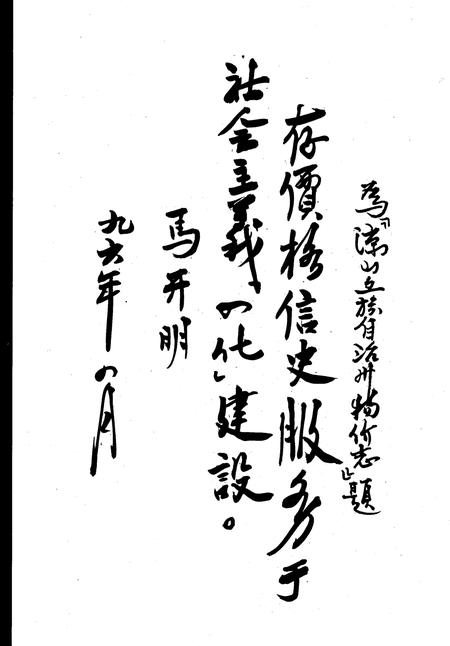 為『涼山彝族自治州物价志』題
存價格信史服务于
社会主義「四化」建設。
馬开明
九六年四月